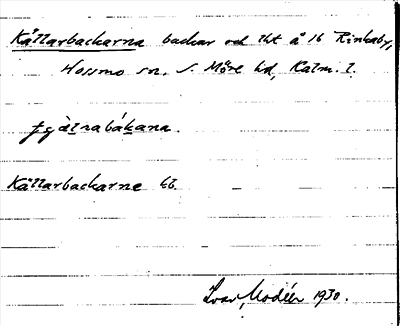 Källarbackarna backar od lht å 16 Rinkaby,
Hossmo sn, S. Möre hd, Kalm. l.
Källarbackarne kb
Ivar Modéer 1930.